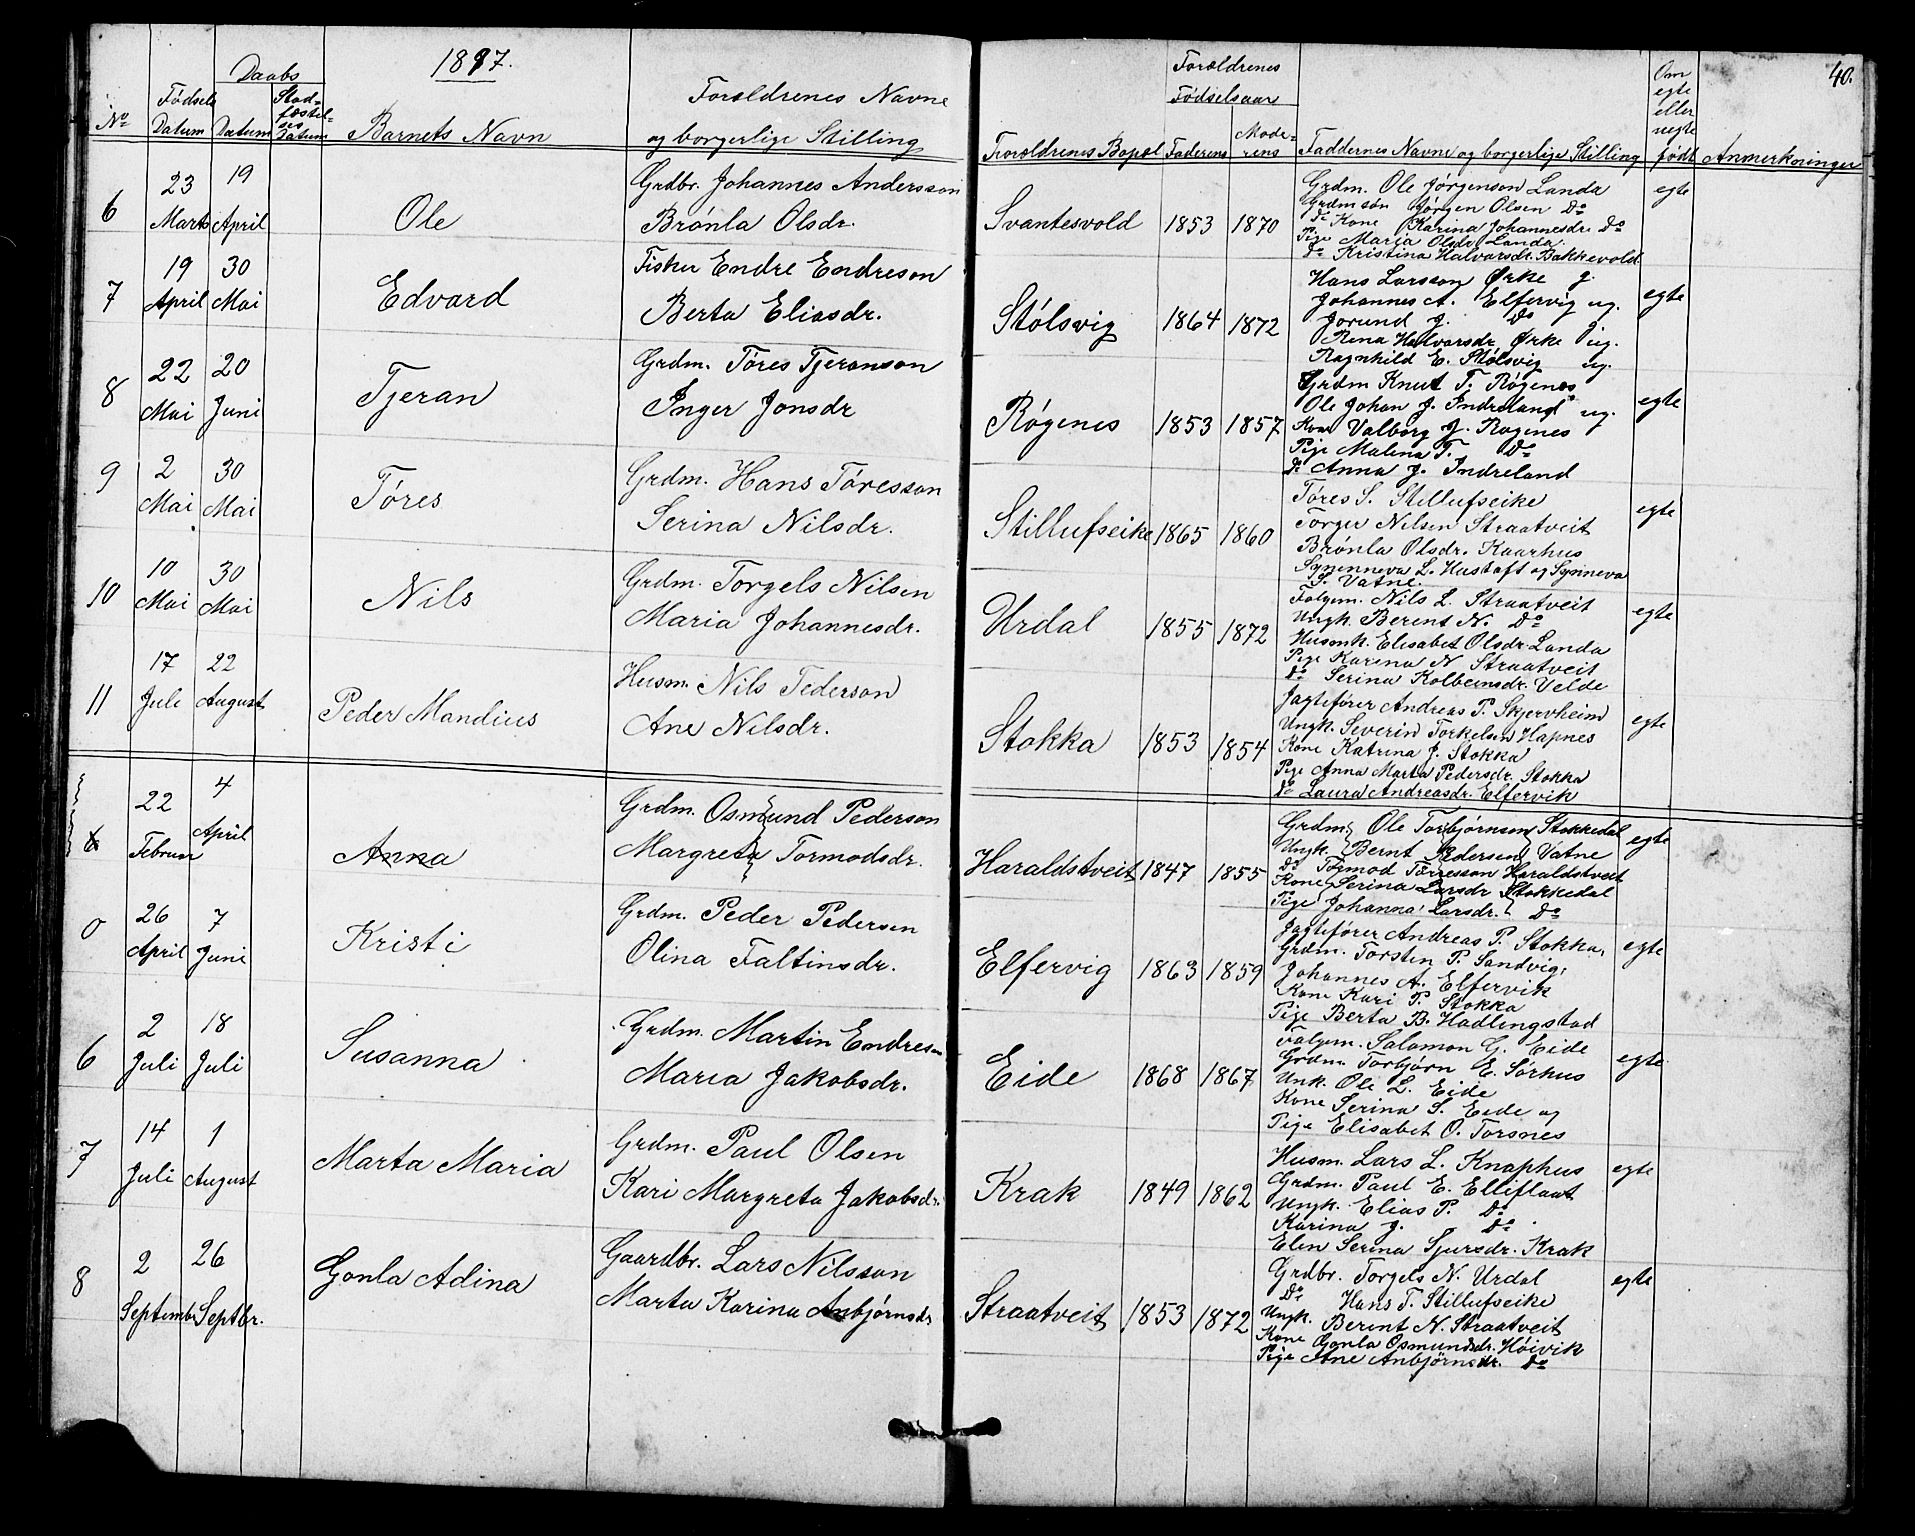 1897.
Daabs
Fødsels Stad=
fæstel=
ses
No Datum Datum Datum Barnets Navn
Forældrenes Navne
og borgerlige Stilling
6 23 Marts 19 April Ole
Grdbr. Johannes Andersson
Brónla Olsdr.
7 19 April 30 Mai Edvard
Fisker Endre Endreson
Berta Eliasdr.
8 22 Mai 20 Juni Tjeran
Grdm. Tóres Tjeranson
Inger Jonsdr
9 2 Mai 30 Mai Tóres
Grdm. Hans Tóresson
Serina Nilsdr.
10 10 Mai 30 Mai Nils
Grdm. Torgels Nilsen
Maria Johannesdr.
11 17 Juli 22 August Peder Mandius
Husm. Nils Pederson
Ane Nilsdr.
22 Februar 4 April Anna
Grdm. Osmund Pederson
Margreta Tormodsdr.
26 April 7 Juni Kristi
Grdm. Peder Pedersen
Olina Faltinsdr.
6 2 Juli 18 Juli Susanna
Grdm. Martin Endresen
Maria Jakobsdr.
7 14 Juli 1 August Marta Maria
Grdm. Paul Olsen
Kari Margreta Jakobsdr.
8 2 Septembr 26 Septbr. Gonla Adina
Gaardbr. Lars Nilsson
Marta Karina Anbjórnsdr
40.
Forældrenes
Fødselsaar
Om
egte
eller
uegte
født
Forældrenes Bopæl Faderens Mode=
rens Faddernes Navne og borgerlige Stilling Anmerkninger
Svantesvold 1853 1870 egte
Grdm. Ole Jórgenson Landa
Grdm søn Jórgen Olsen Do
do Kone Karina Johannesdr. Do
Pige Maria Olsdr Landa.
Do Kristina Halvorsdr. Bakkevold
Stólsvig 1864 1872 egte
Hans Larsson Órke g.
Johannes A. Elfervig ug.
Jorund J. Do
Rina Halvarsdr Órke ug.
Ragnhild E. Stólsvig ug.
Rógenes 1853 1857 egte
Grdm Knut T. Rógenes
Ole Johan J. Indreland ug.
Kone Valborg J. Rogenes
Pige Malena T. Do
Do Anna J. Indreland
Stillufseike 1865 1860 egte
Tóres S. Stillufseike
Torger Nilsen Straatveit
Brónla Olsdr. Kaarhus
Synenneva L. Hustoft og Synneva
S. Vatne.
Urdal 1855 1872 egte
Folgem. Nils L. Straatveit
Ungk. Berent N. Do
Husmk. Elisabet Olsdr. Landa
Pige Karina N Straatveit
do Serina Kolbeinsdr. Velde
Stokka 1853 1854 egte
Jagtefórer Andreas P. Skjervheim
Ungk. Severin Torkelsen Hapnes
Kone Katrina J. Stokka
Pige Anna Marta Pedersdr. Stokka
Do Laura Andreasdr. Elfervik
Haraldstveit 1847 1855 egte
Grdm. Ole Torbjórnsen Stokkedal
Ungk. Bernt Pedersen Vatne
Do Tormod Tórresson Haraldstveit
Kone Serina Larsdr Stokkedal
Pige Johanna Larsdr. Do
Elfervig 1863 1859 egte
Jagtefórer Andreas P. Stokka,
Grdm. Torsten P. Sandvig,
Johannes A. Elfervik
Kone Kari P. Stokka
Pige Berta B. Hadlingstad
Eide 1868 1867 egte
Folgem. Salamon G. Eide
Grdm. Torbjórn E. Sórhus
Unk. Ole L. Eide
Kone Serina S. Eide og
Pige Elisabet O. Torsnes
Krak 1849 1862 egte
Husm. Lars L. Knaphus
Grdm. Paul E. Elliflaat
Ungk. Elias P. Do
Karina J. Do
Elen Serina Sjursdr. Krak
Straatveit 1853 1872 egte
Grdbr. Torgels N. Urdal
Do Hans T. Stillufseike
Ungk. Berent N. Straatveit
Kone Gonla Osmundsdr. Hóivik
Pige Ane Anbjórnsdr. Do